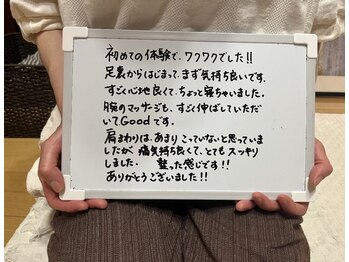 初めての体験で、ワクワクでした!!
足裏からはじまって、まず気持ち良いです。
すごく心地良くて、ちょっと寝ちゃいました。
腕のマッサージも、すごく伸ばしていただ
いてGoodです。
肩まわりは、あまりこっていないと思っていま
したが 痛気持ち良くて、とても スッキリ
しました。 整った感じです!!
ありがとうございました!!